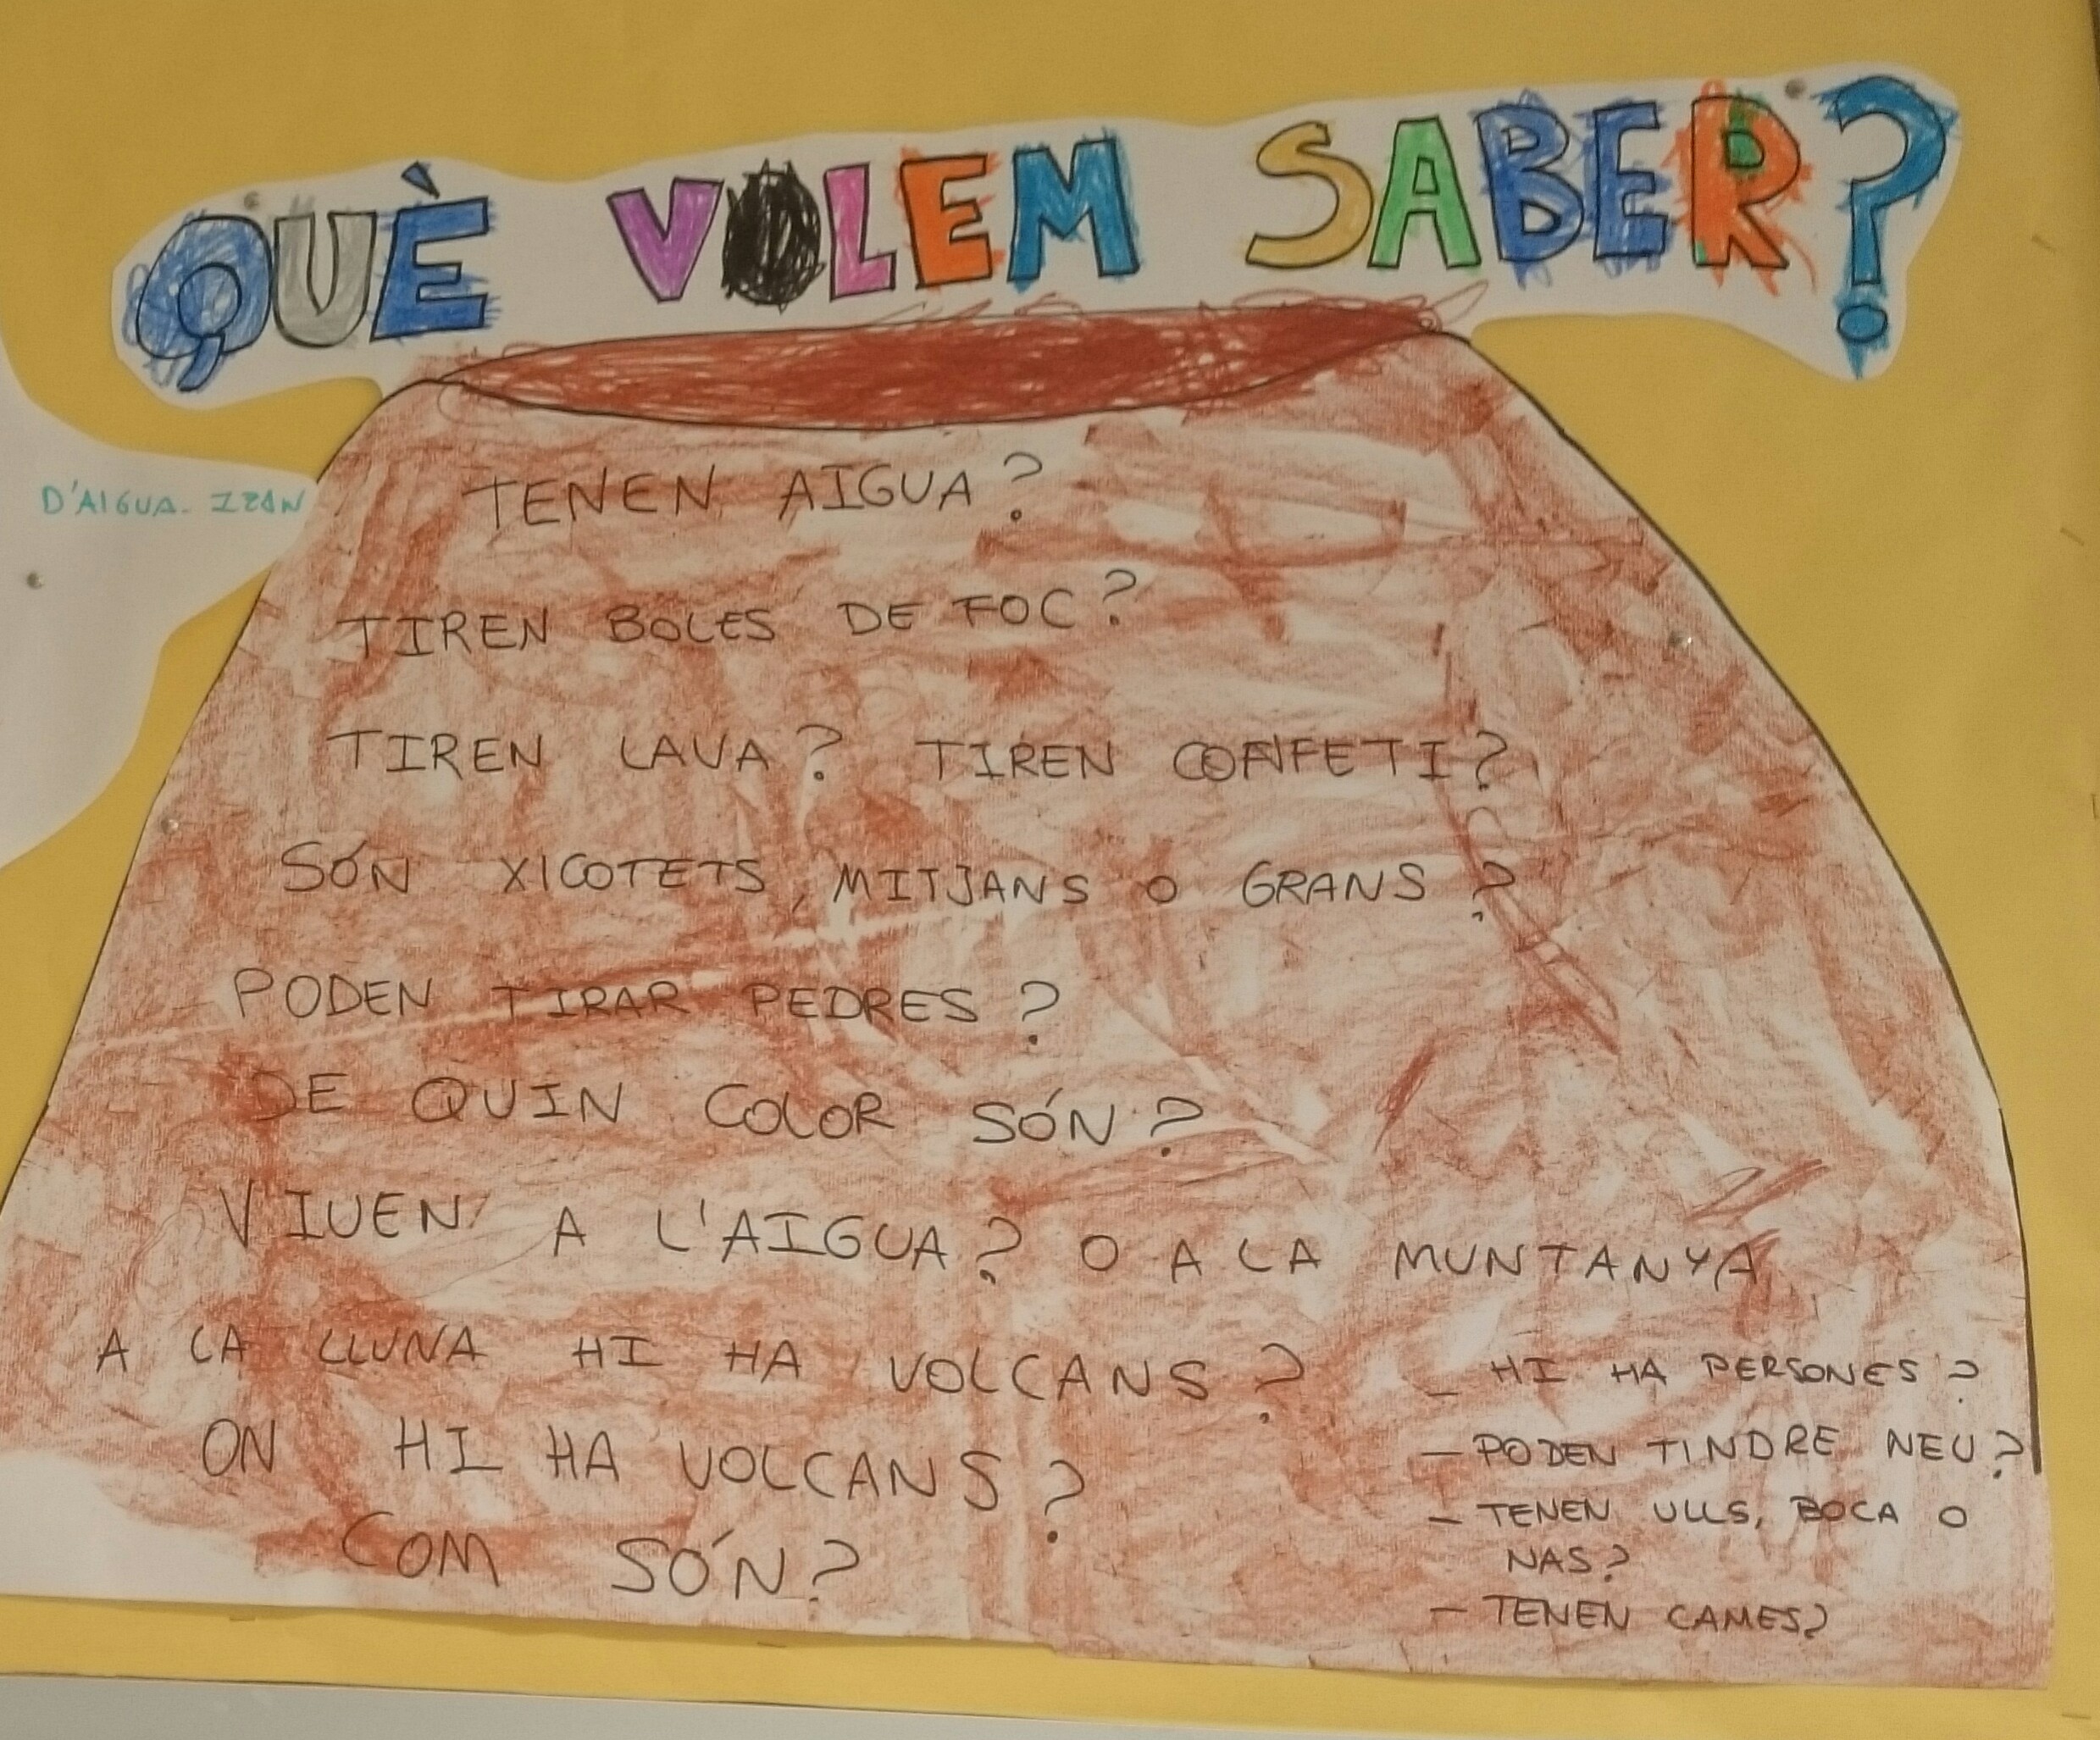 QUÈ VOLEM SABER?
D'AIGUA. IZAN
TENEN AIGUA?
TIREN BOLES DE FOC?
TIREN LAVA? TIREN CONFETI?
SÓN XICOTETS, MITJANS O GRANS?
PODEN TIRAR PEDRES?
DE QUIN COLOR SÓN?
VIUEN A L'AIGUA? O A LA MUNTANYA
A LA LLUNA HI HA VOLCANS?
ON HI HA VOLCANS?
COM SÓN?
- HI HA PERSONES?
- PODEN TINDRE NEU?
- TENEN ULLS, BOCA O
NAS?
- TENEN CAMES?